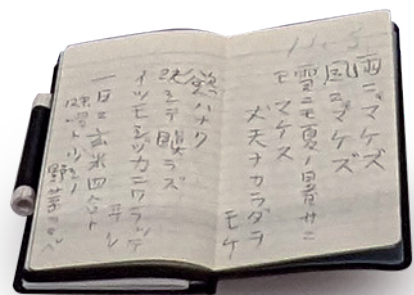 11.3
雨ニモマケズ
風ニモマケズ
雪ニモ夏ノ暑サニ
モマケヌ
丈夫ナカラダヲ
モチ
慾ハナク
決シテ瞋ラズ
イツモシヅカニワラッテ
ヰル
一日ニ玄米四合ト
味噌ト少シノ
野菜ヲタベ